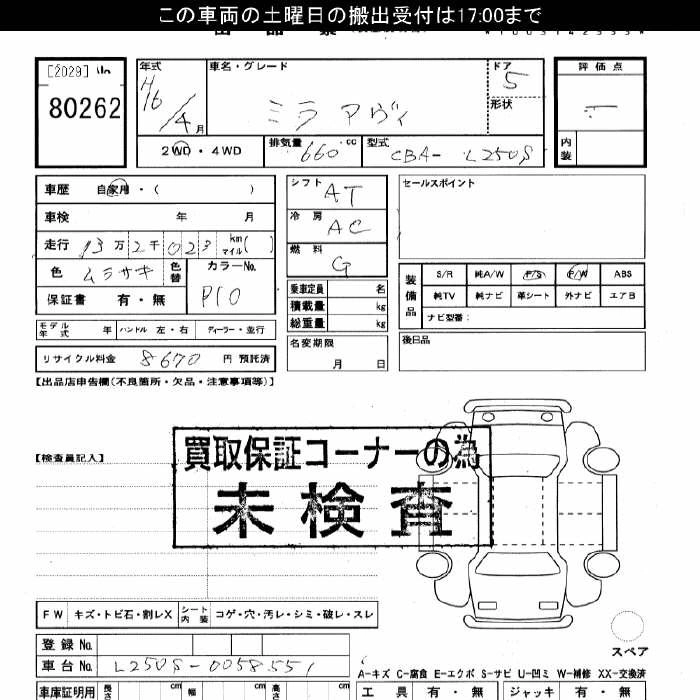 この車両の土曜日の搬出受付は17:00まで
[2029]
80262
年式 H16/4月
車名・グレード ミラ アヴィ
ドア 5
形状
評価点
内装
2WD・4WD
排気量 660 cc
型式 CBA- L250S
車歴 自家用・( )
車検 年 月
走行 13万2千023 km マイル( )
色 ムラサキ 色替
カラーNo. P10
保証書 有・無
シフト AT
冷房 AC
燃料 G
乗車定員 名
積載量 kg
総重量 kg
名変期限 月 日
セールスポイント
装備品
S/R 純A/W P/S P/W ABS
純TV 純ナビ 革シート 外ナビ エアB
ナビ型番:
後日品
モデル年式 年 ハンドル 左・右 ディーラー・並行
リサイクル料金 8670 円 預託済
【出品店申告欄(不良箇所・欠品・注意事項等)】
【検査員記入】
買取保証コーナーの為
未検査
FW キズ・トビ石・割レX シート内装 コゲ・穴・汚レ・シミ・破レ・スレ
スペア
登録No.
車台No. L250S-0058551
A-キズ C-腐食 E-エクボ S-サビ U-凹ミ W-補修 XX-交換済
車庫証明用 長さ cm 幅 cm 高さ cm
工具 有・無 ジャッキ 有・無